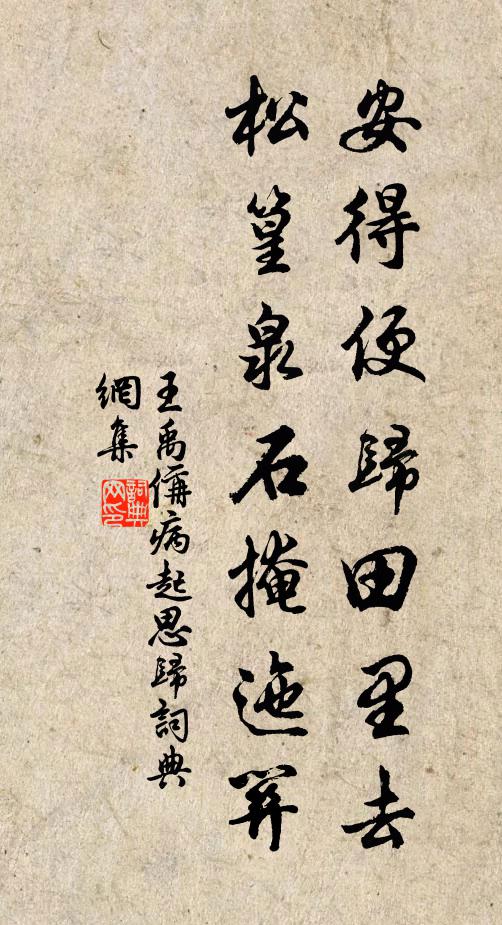 安得便歸田里去
松篁泉石掩迤
王禹偁病起思歸詞典
網集
詞典
网印